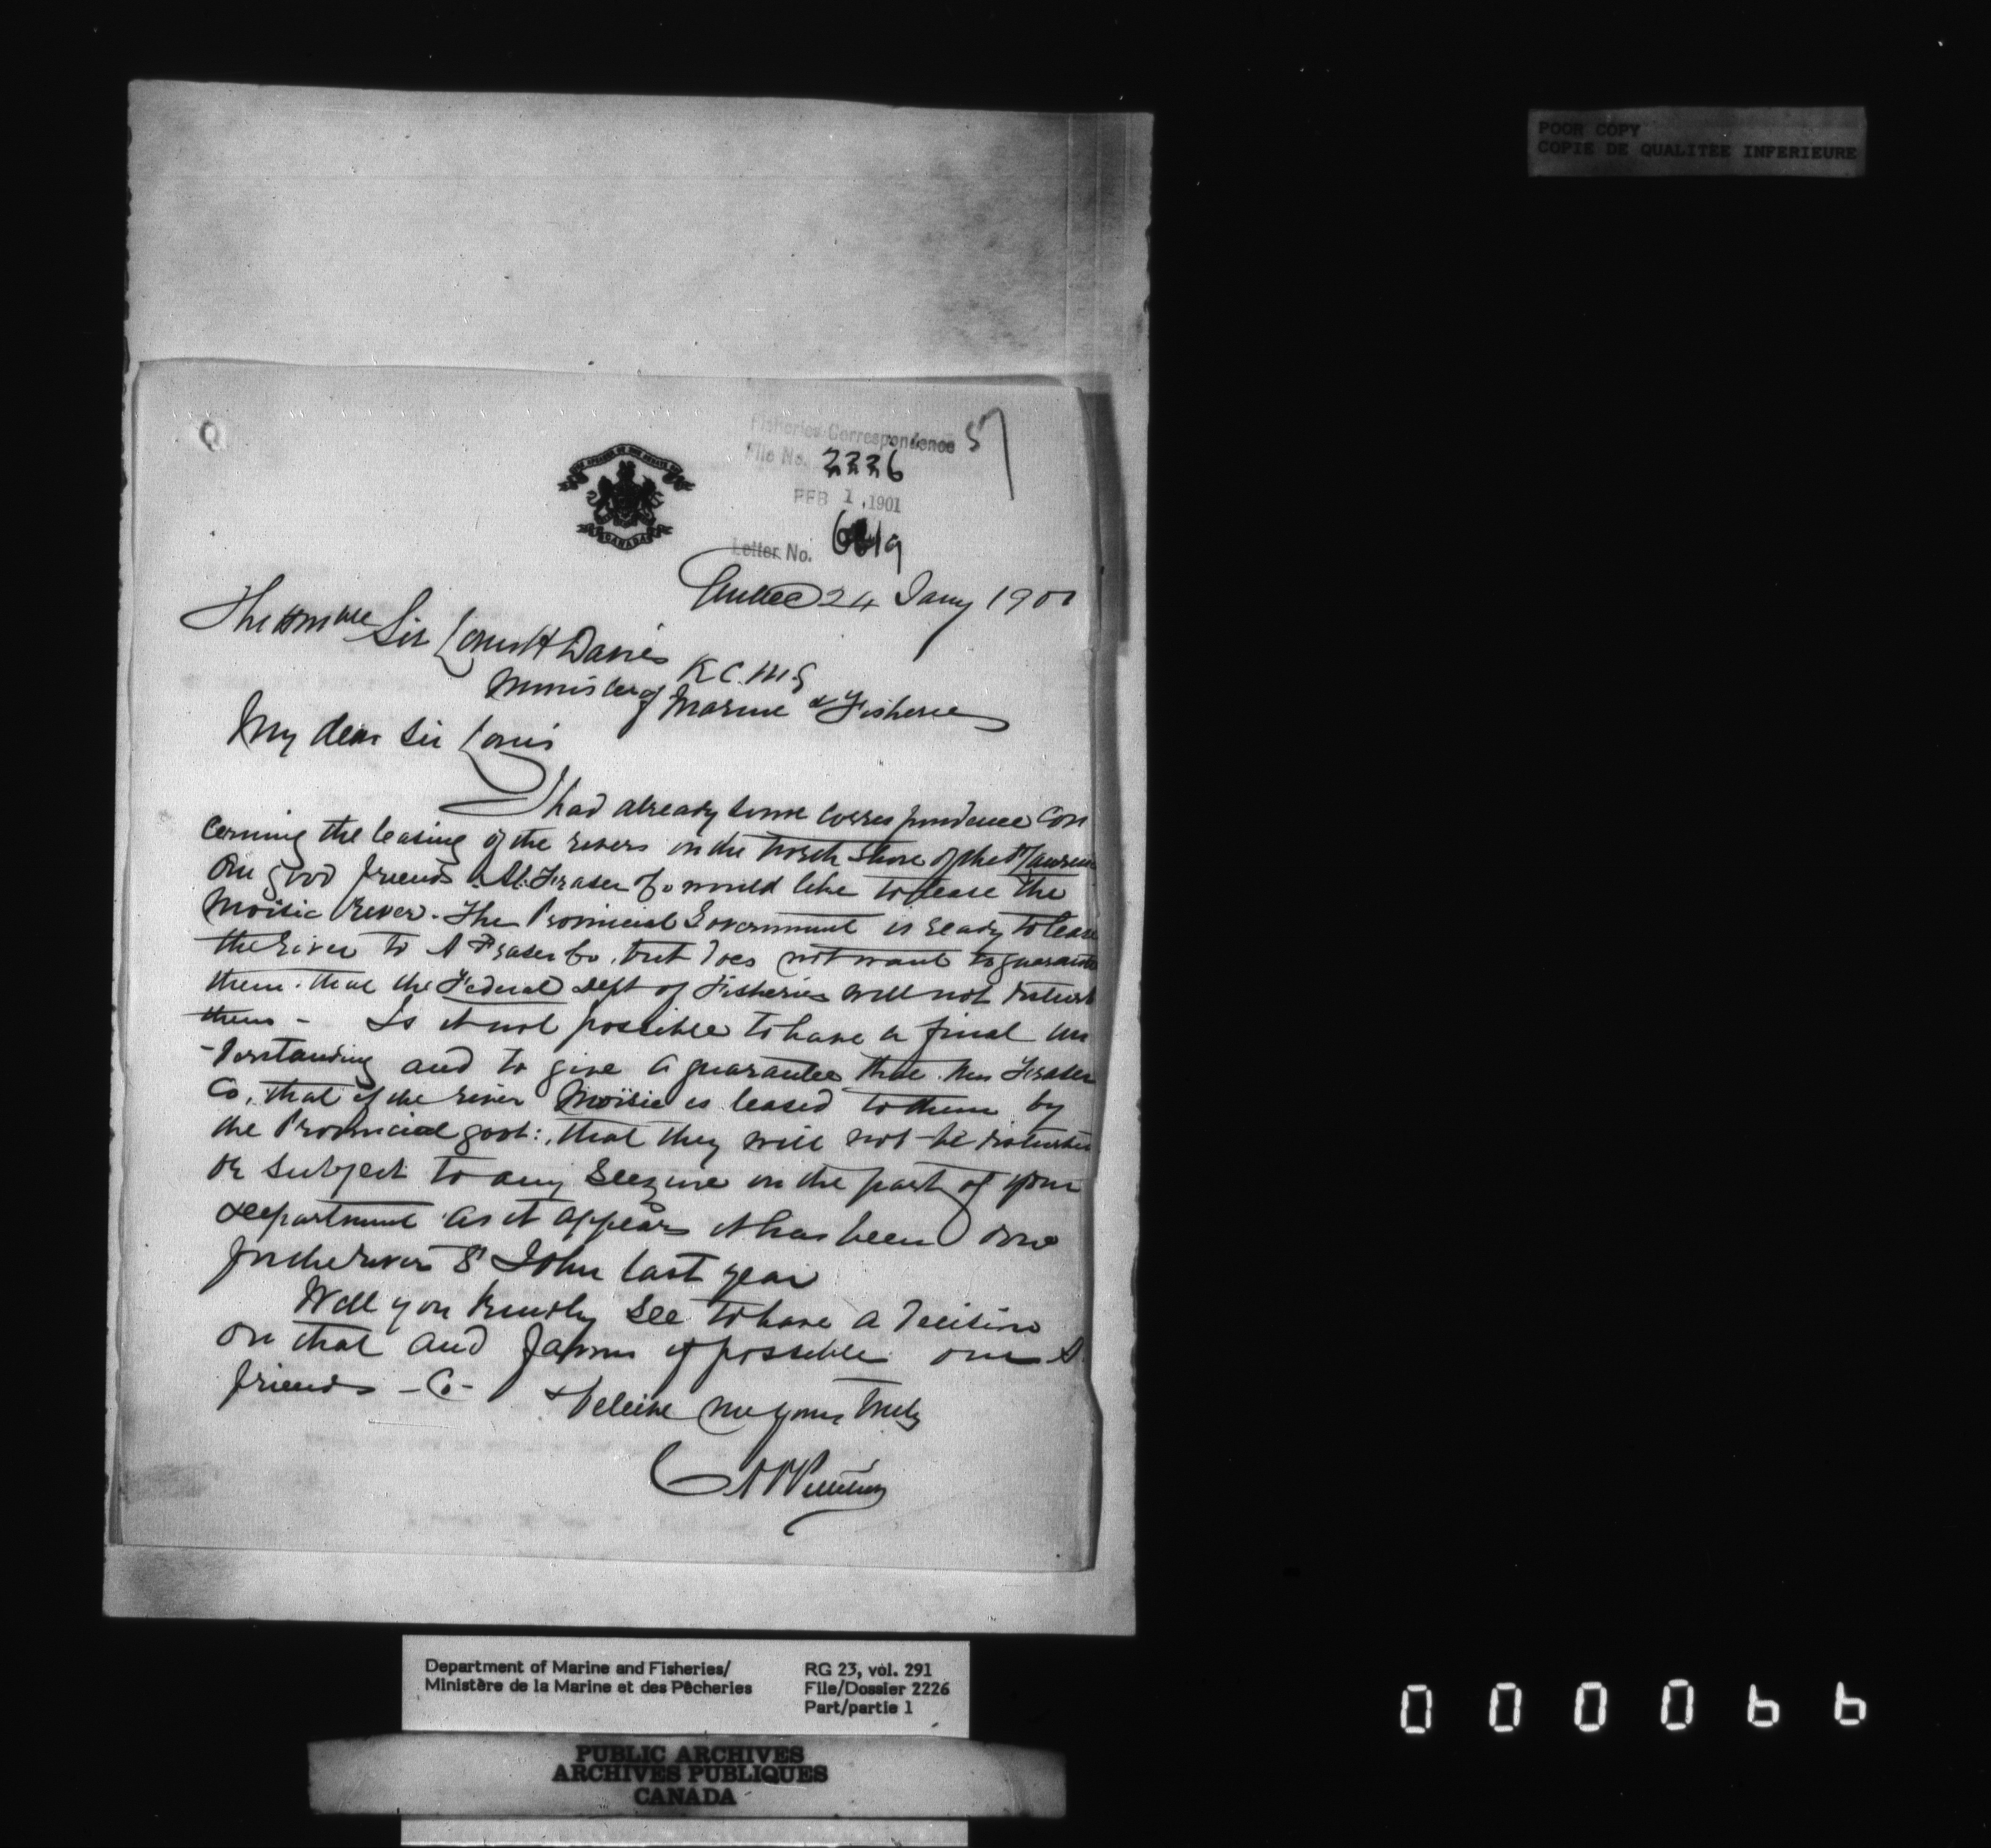 POOR COPY
COPIE DE QUALITEE INFERIEURE
Fisheries Correspondence 57
File No. 2226
FEB 1 . 1901
Letter No. 19
CANADA
Quebec 24 Jany 1901
The Honble Sir Louis H Davies K C. M G
Minister of Marine & Fisheries
My dear Sir Louis
I had already some correspondence con
cerning the leasing of the rivers on the North Shore of the St Lawrence
Our good friends A. Fraser Co would like to lease the
Moisic River. The Provincial Government is ready to lease
the river to A Fraser Co. but does not want to guarantee
them that the Federal Dept of Fisheries will not disturb
them - Is it not possible to have a final un
-derstanding and to give a guarantee that Fraser
Co, that if the river Moïsic is leased to them by
the Provincial govt:, that they will not be disturbed
or subject to any Seezure on the part of your
department as it appears it has been done
for the river St John last year
Will you kindly see to have a decision
on that and favour if possible our
friends - Co - & beleive me yours truly
Department of Marine and Fisheries/
Ministère de la Marine et des Pêcheries
RG 23, vol. 291
File/Dossier 2226
Part/partie 1
PUBLIC ARCHIVES
ARCHIVES PUBLIQUES
CANADA
000066